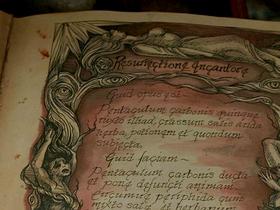 Resurrectione Incantore
Quid opus est -
Pentaculum carbonis pinique
mixto illiad, crassum salis arida
herba, potionem et quondum
subjecta.
Quid faciam -
Pentaculum carbonis ducta
et pone defuncti animam.
Encumire periphida cum
mixto salis et herbarum